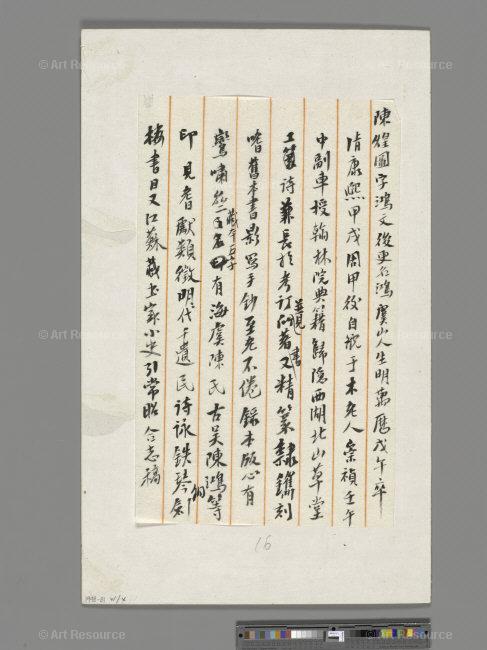 陳煌圖字鴻文後更名鴻虞山人生明萬曆戊午卒
清康熙甲戌周甲後自號于木老人崇禎壬午
中副車授翰林院典籍歸隱西湖北山草堂
工詩兼長於考訂所著又精篆隸鐫刻
嗜舊本書影寫手鈔至老不倦錄本版心有
鸞嘯 藏本五字
印有海虞陳氏古吳陳鴻等
印見耆獻類徵明代千遺民詩詠鐵琴銅劍
樓書目又江蘇藏書家小史引常昭合志稿
16
© Art Resource
© Art Resource
© Art Resource
© Art Resource
© Art Resource
© Art Resource